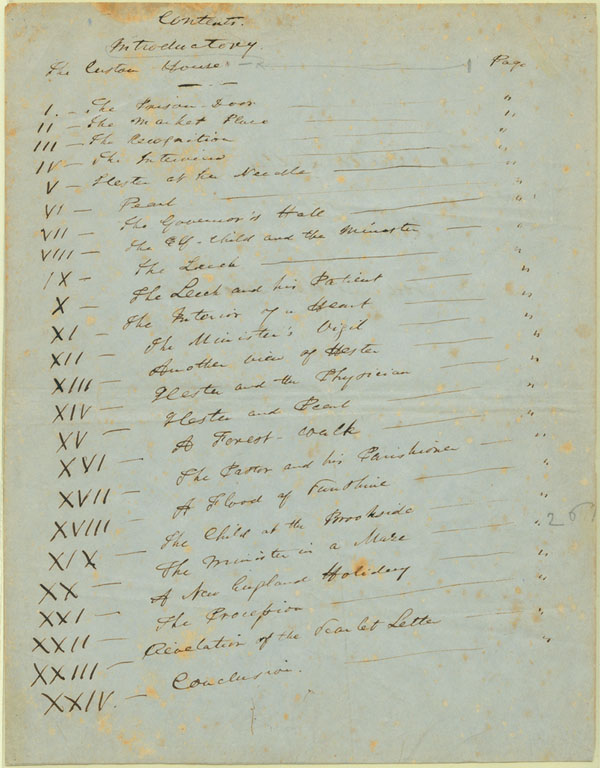 Contents.
Introductory.
The Custom House — 1 Page
I. — The Prison-Door — "
II — The Market Place — "
III — The Recognition — "
IV — The Interview — "
V — Hester at her Needle — "
VI — Pearl — "
VII — The Governor's Hall — "
VIII — The Elf-Child and the Minister — "
IX — The Leech — "
X — The Leech and his Patient — "
XI — The Interior of a Heart — "
XII — The Minister's Vigil — "
XIII — Another view of Hester — "
XIV — Hester and the Physician — "
XV — Hester and Pearl — "
XVI — A Forest-walk — "
XVII — The Pastor and his Parishioner — "
XVIII — A Flood of Sunshine — "
XIX — The Child at the Brookside — "
XX — The Minister in a Maze — "
XXI — A New England Holiday — "
XXII — The Procession — "
XXIII — Revelation of the Scarlet Letter — "
XXIV. — Conclusion. — "